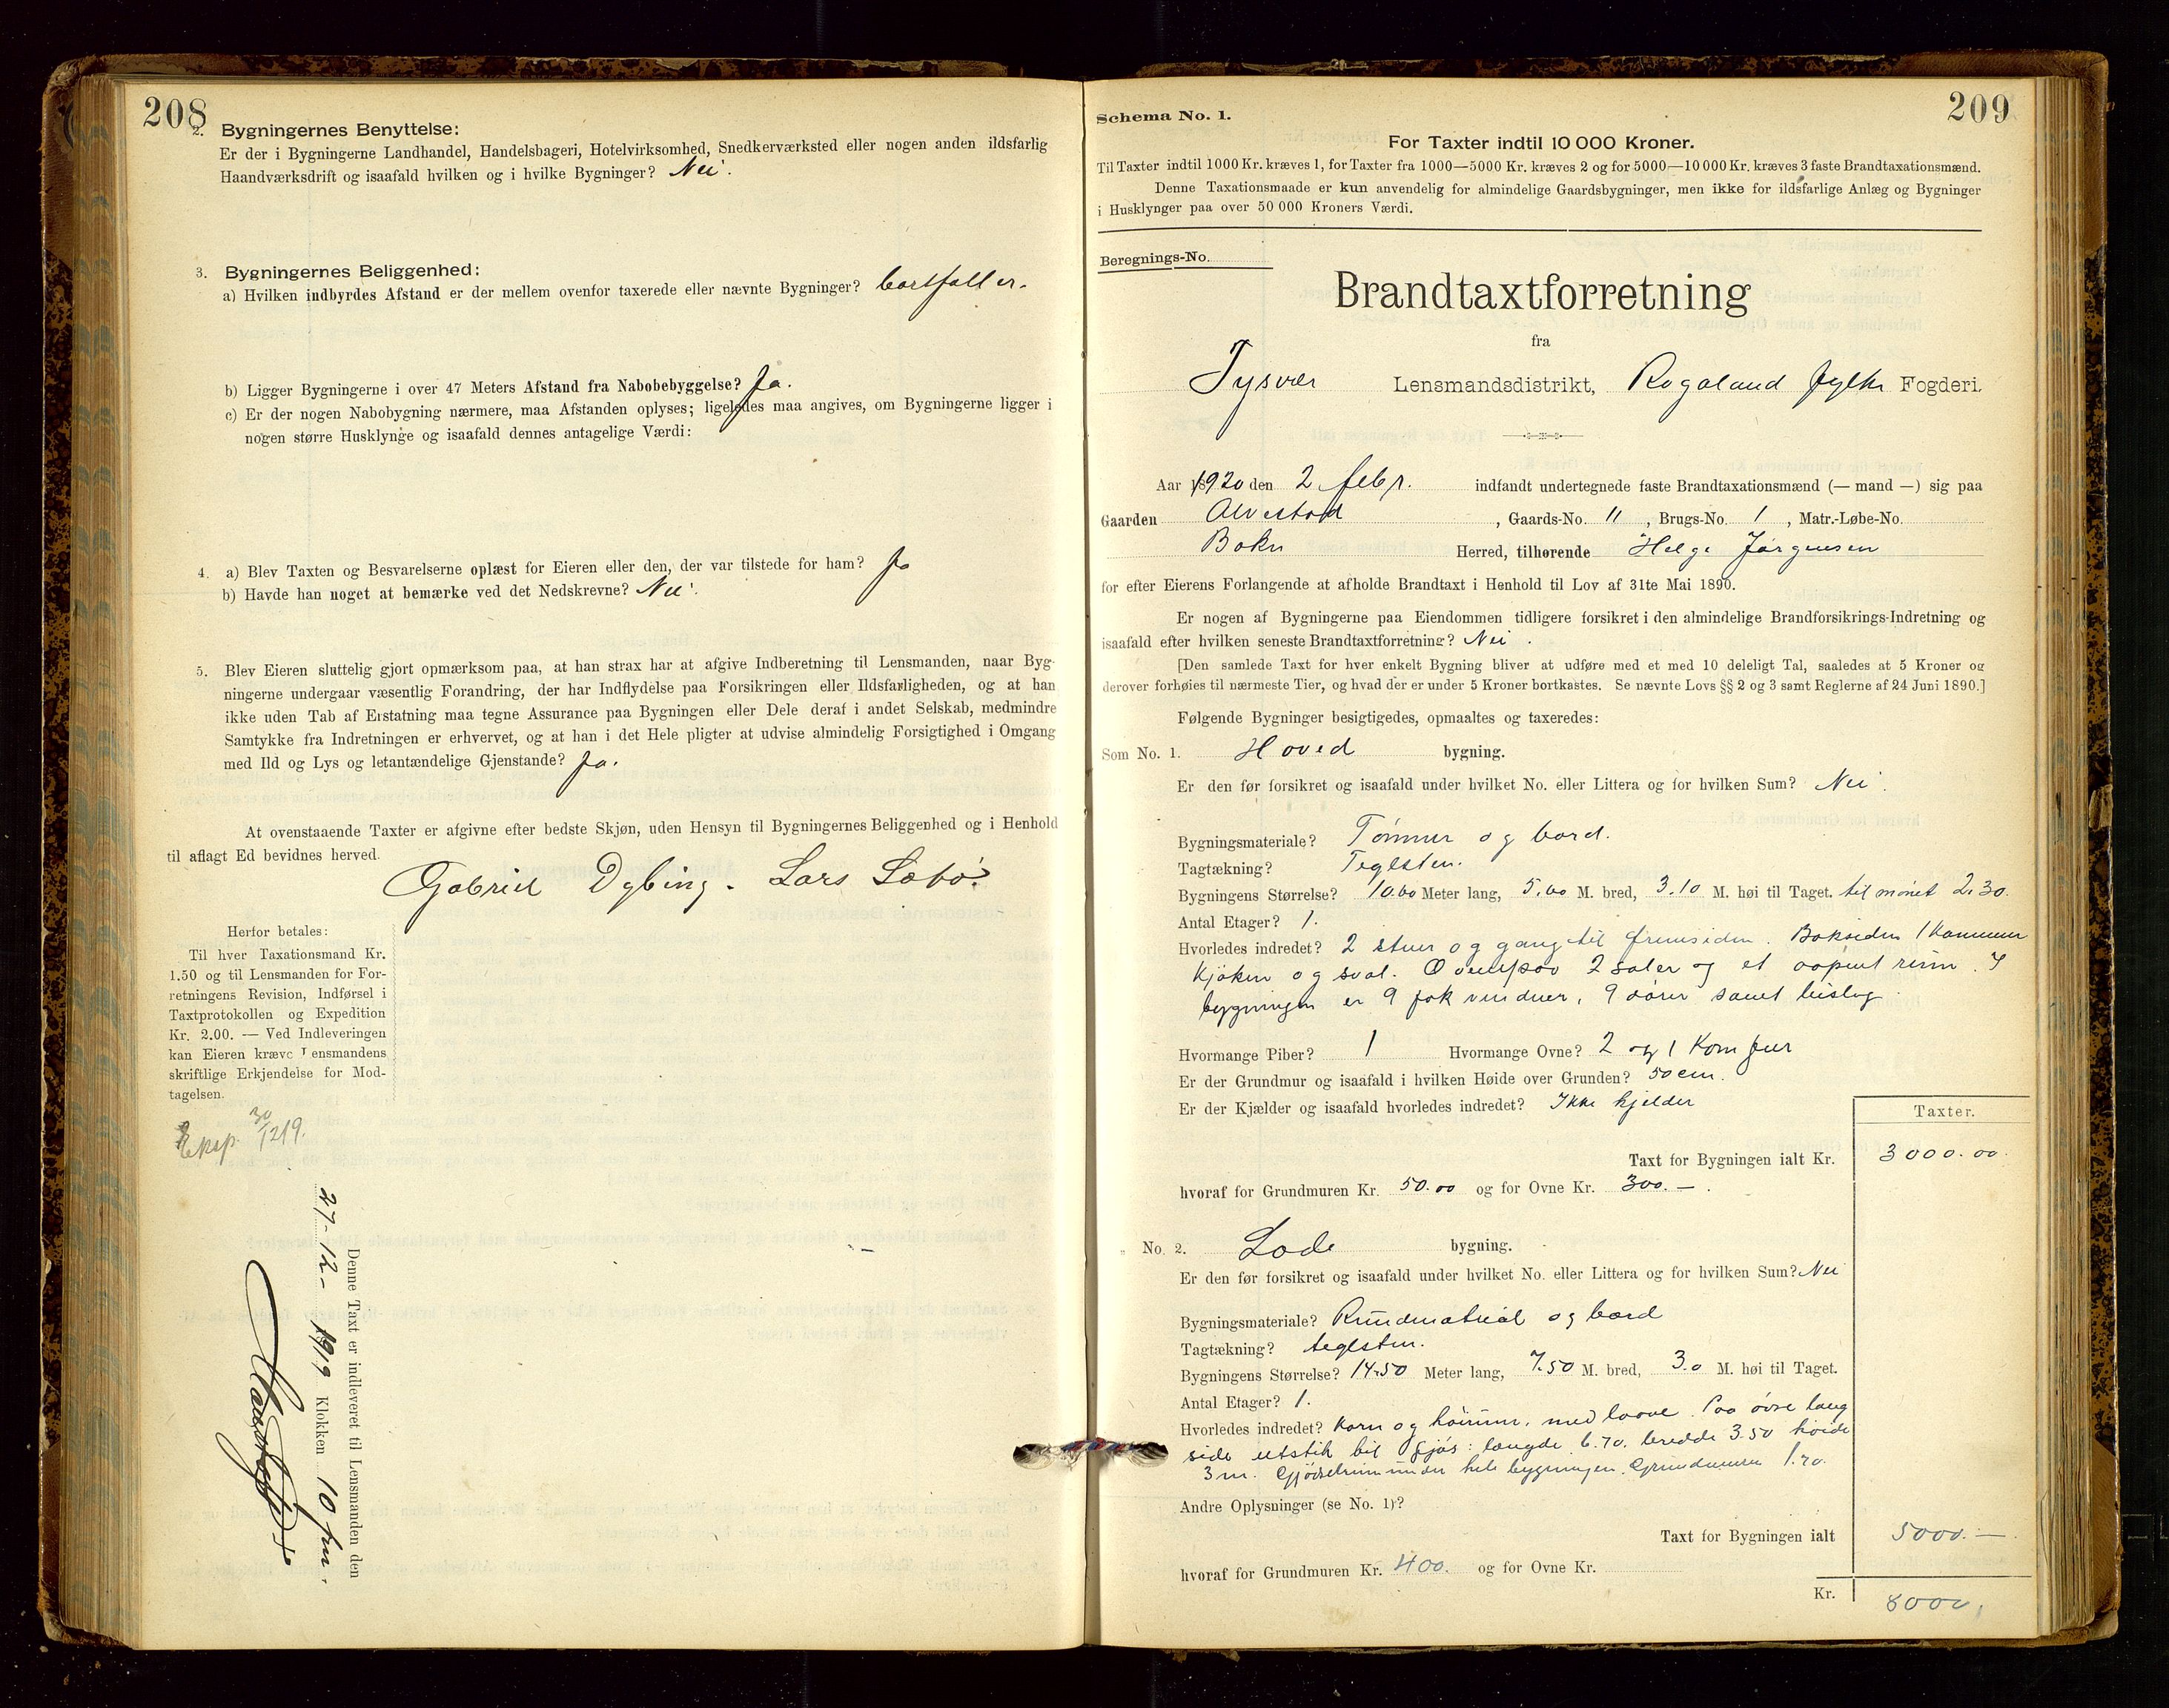 208
2. Bygningernes Benyttelse:
Er der i Bygningerne Landhandel, Handelsbageri, Hotelvirksomhed, Snedkerværksted eller nogen anden ildsfarlig
Haandværksdrift og isaafald hvilken og i hvilke Bygninger? Nei.
3. Bygningernes Beliggenhed:
a) Hvilken indbyrdes Afstand er der mellem ovenfor taxerede eller nævnte Bygninger? bortfaller.
b) Ligger Bygningerne i over 47 Meters Afstand fra Nabobebyggelse? Ja.
c) Er der nogen Nabobygning nærmere, maa Afstanden oplyses; ligeledes maa angives, om Bygningerne ligger i
nogen større Husklynge og isaafald dennes antagelige Værdi:
4. a) Blev Taxten og Besvarelserne oplæst for Eieren eller den, der var tilstede for ham? Ja
b) Havde han noget at bemærke ved det Nedskrevne? Nei.
5. Blev Eieren sluttelig gjort opmærksom paa, at han strax har at afgive Indberetning til Lensmanden, naar Byg-
ningerne undergaar væsentlig Forandring, der har Indflydelse paa Forsikringen eller Ildsfarligheden, og at han
ikke uden Tab af Erstatning maa tegne Assurance paa Bygningen eller Dele deraf i andet Selskab, medmindre
Samtykke fra Indretningen er erhvervet, og at han i det Hele pligter at udvise almindelig Forsigtighed i Omgang
med Ild og Lys og letantændelige Gjenstande? Ja.
At ovenstaaende Taxter er afgivne efter bedste Skjøn, uden Hensyn til Bygningernes Beliggenhed og i Henhold
til aflagt Ed bevidnes herved.
Gabriel Dybing. Lars Løbø.
Herfor betales:
Til hver Taxationsmand Kr.
1.50 og til Lensmanden for For-
retningens Revision, Indførsel i
Taxtprotokollen og Expedition
Kr. 2.00. — Ved Indleveringen
kan Eieren kræve Lensmandens
skriftlige Erkjendelse for Mod-
tagelsen.
Eksp. 30/12 19.
Denne Taxt er indleveret til Lensmanden den
27-12-1919 Klokken 10 fm.
209
Schema No. 1.
For Taxter indtil 10 000 Kroner.
Til Taxter indtil 1000 Kr. kræves 1, for Taxter fra 1000—5000 Kr. kræves 2 og for 5000—10 000 Kr. kræves 3 faste Brandtaxationsmænd.
Denne Taxationsmaade er kun anvendelig for almindelige Gaardsbygninger, men ikke for ildsfarlige Anlæg og Bygninger
i Husklynger paa over 50 000 Kroners Værdi.
Beregnings-No.
Brandtaxtforretning
fra
Tysvær Lensmandsdistrikt, Rogaland fylke Fogderi.
Aar 1920 den 2 febr. indfandt undertegnede faste Brandtaxationsmænd (— mand —) sig paa
Gaarden Alvestad, Gaards-No. 11, Brugs-No. 1, Matr.-Løbe-No.
Bokn Herred, tilhørende Helge Jørgensen
for efter Eierens Forlangende at afholde Brandtaxt i Henhold til Lov af 31te Mai 1890.
Er nogen af Bygningerne paa Eiendommen tidligere forsikret i den almindelige Brandforsikrings-Indretning og
isaafald efter hvilken seneste Brandtaxtforretning? Nei.
[Den samlede Taxt for hver enkelt Bygning bliver at udføre med et med 10 deleligt Tal, saaledes at 5 Kroner og
derover forhøies til nærmeste Tier, og hvad der er under 5 Kroner bortkastes. Se nævnte Lovs §§ 2 og 3 samt Reglerne af 24 Juni 1890.]
Følgende Bygninger besigtigedes, opmaaltes og taxeredes:
Som No. 1. Hoved bygning.
Er den før forsikret og isaafald under hvilket No. eller Littera og for hvilken Sum? Nei.
Bygningsmateriale? Tømmer og bord.
Tagtækning? Teglsten.
Bygningens Størrelse? 10.00 Meter lang, 5.00 M. bred, 3.10 M. høi til Taget. til mønet 2.30.
Antal Etager? 1.
Hvorledes indredet? 2 stuer og gang til fremsiden. Baksiden 1 kammer
kjøken og sval. Ovenpaa 2 saler og et aapent rum. I
bygningen er 9 fak vinduer, 9 dører samt
Hvormange Piber? 1 Hvormange Ovne? 2 og 1 komfur
Er der Grundmur og isaafald i hvilken Høide over Grunden? 50 cm.
Er der Kjælder og isaafald hvorledes indredet? Ikke kjelder
Taxter.
Taxt for Bygningen ialt Kr. 3000.00
hvoraf for Grundmuren Kr. 50.00 og for Ovne Kr. 300.—.
" No. 2. Lade bygning.
Er den før forsikret og isaafald under hvilket No. eller Littera og for hvilken Sum? Nei
Bygningsmateriale? Rundmaterial og bord
Tagtækning? teglsten.
Bygningens Størrelse? 14.50 Meter lang, 7.50 M. bred, 3.0 M. høi til Taget.
Antal Etager? 1.
Hvorledes indredet? Korn og høirum, med laave. Paa øvre lang
side utstik til fjøs: længde 6.70. bredde 3.50 høide
3 m. Gjødselrum under hele bygningen. Grundmuren 1.70.
Andre Oplysninger (se No. 1)?
Taxt for Bygningen ialt 5000.—
hvoraf for Grundmuren Kr. 400. og for Ovne Kr.
Kr. 8000.